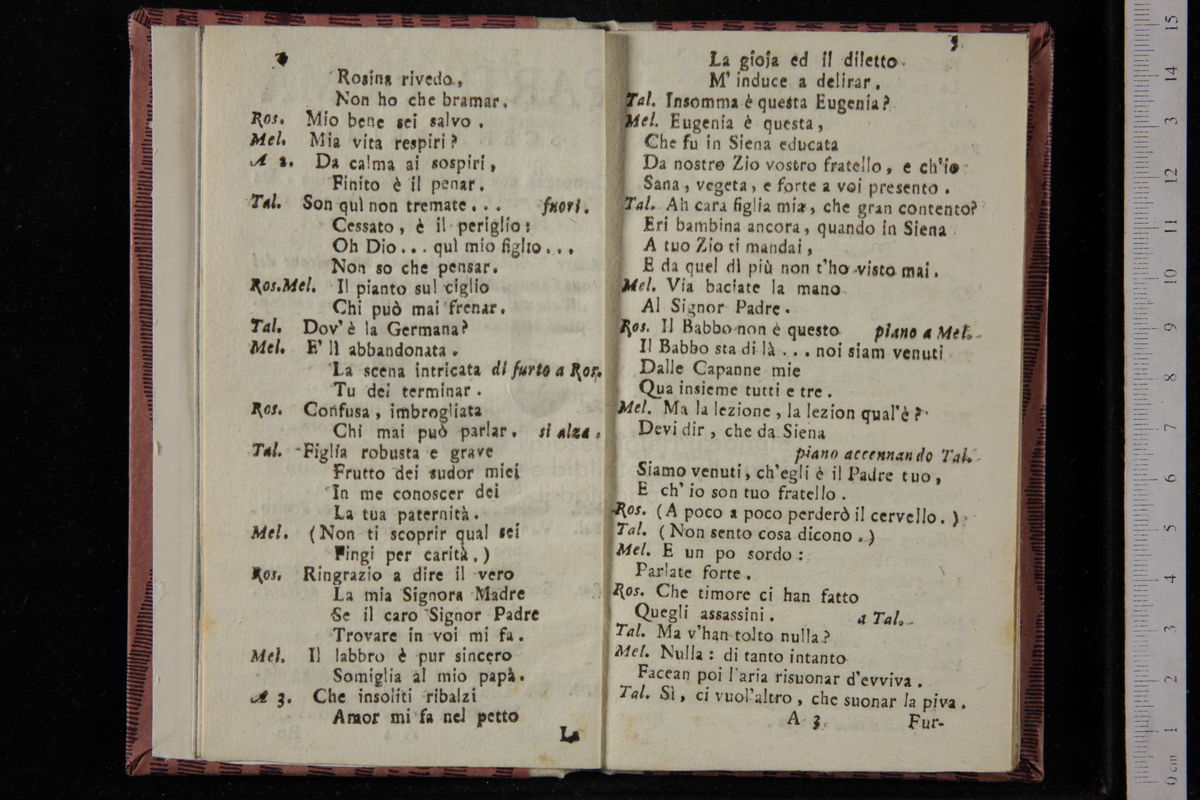 Rosina rivedo,
Non ho che bramar.
Ros. Mio bene sei salvo.
Mel. Mia vita respiri?
A 2. Da calma ai sospiri,
Finito è il penar.
Tal. Son quì non tremate... fuori.
Cessato, è il periglio:
Oh Dio... quì mio figlio...
Non so che pensar.
Ros.Mel. Il pianto sul ciglio
Chi può mai frenar.
Tal. Dov'è la Germana?
Mel. E' lì abbandonata.
La scena intricata di furto a Ros.
Tu dei terminar.
Ros. Confusa, imbrogliata
Chi mai può parlar. si alza.
Tal. Figlia robusta e grave
Frutto dei sudor miei
In me conoscer dei
La tua paternità.
Mel. (Non ti scoprir qual sei
Fingi per carità.)
Ros. Ringrazio a dire il vero
La mia Signora Madre
Se il caro Signor Padre
Trovare in voi mi fa.
Mel. Il labbro è pur sincero
Somiglia al mio papà.
A 3. Che insoliti ribalzi
Amor mi fa nel petto
La
5
La gioja ed il diletto
M'induce a delirar.
Tal. Insomma è questa Eugenia?
Mel. Eugenia è questa,
Che fu in Siena educata
Da nostro Zio vostro fratello, e ch'io
Sana, vegeta, e forte a voi presento.
Tal. Ah cara figlia mia, che gran contento?
Eri bambina ancora, quando in Siena
A tuo Zio ti mandai,
E da quel dì più non t'ho visto mai.
Mel. Via baciate la mano
Al Signor Padre.
Ros. Il Babbo non è questo piano a Mel.
Il Babbo sta di là... noi siam venuti
Dalle Capanne mie
Qua insieme tutti e tre.
Mel. Ma la lezione, la lezion qual'è?
Devi dir, che da Siena
piano accennando Tal.
Siamo venuti, ch'egli è il Padre tuo,
E ch'io son tuo fratello.
Ros. (A poco a poco perderò il cervello.)
Tal. (Non sento cosa dicono.)
Mel. E un po sordo:
Parlate forte.
Ros. Che timore ci han fatto
Quegli assassini. a Tal.
Tal. Ma v'han tolto nulla?
Mel. Nulla: di tanto intanto
Facean poi l'aria risuonar d'evviva.
Tal. Sì, ci vuol'altro, che suonar la piva.
A 3 Fur-